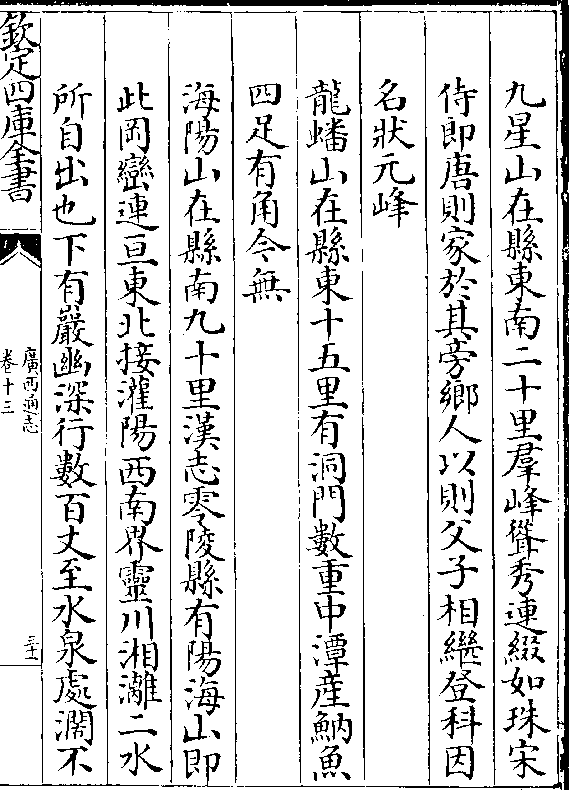 九星山在縣東南二十里羣峰聳秀連綴如珠宋
侍郎唐則家於其旁鄉人以則父子相繼登科因
名狀元峰
龍蟠山在縣東十五里有洞門數重中潭産魶魚
四足有角今無
海陽山在縣南九十里漢志零陵縣有陽海山即
此岡巒連亘東北接灌陽西南界靈川湘灕二水
所自出也下有巖幽深行數百丈至水泉處濶不
欽定四庫全書
廣西通志
卷十三
三十一